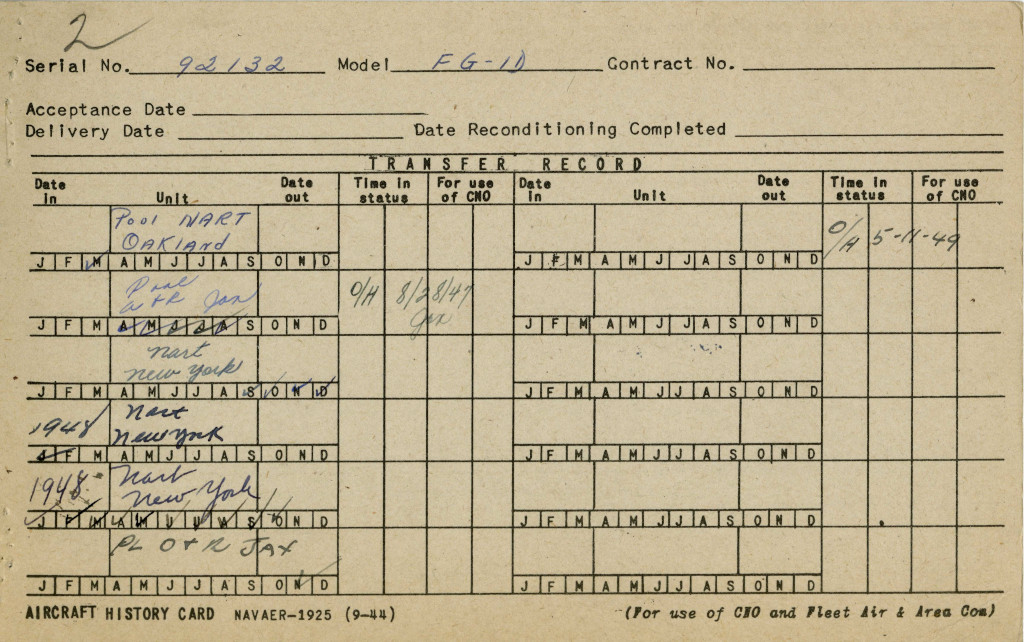 2
Serial No. 92132 Model FG-1D Contract No.
Acceptance Date
Delivery Date Date Reconditioning Completed
TRANSFER RECORD
Date in Unit Date out Time in status For use of CNO Date in Unit Date out Time in status For use of CNO
Pool NART
OAKLAND O/H 5-11-49
J F M A M J J A S O N D J F M A M J J A S O N D
Pool
A+R Jax O/H 8/28/47
Jax
J F M A M J J A S O N D J F M A M J J A S O N D
Nart
New York
J F M A M J J A S O N D J F M A M J J A S O N D
1948 Nart
New York
J F M A M J J A S O N D J F M A M J J A S O N D
1948 Nart
New York
J F M A M J J A S O N D J F M A M J J A S O N D
PL O+R JAX
J F M A M J J A S O N D J F M A M J J A S O N D
AIRCRAFT HISTORY CARD NAVAER-1925 (9-44) (For use of CNO and Fleet Air & Area Com)